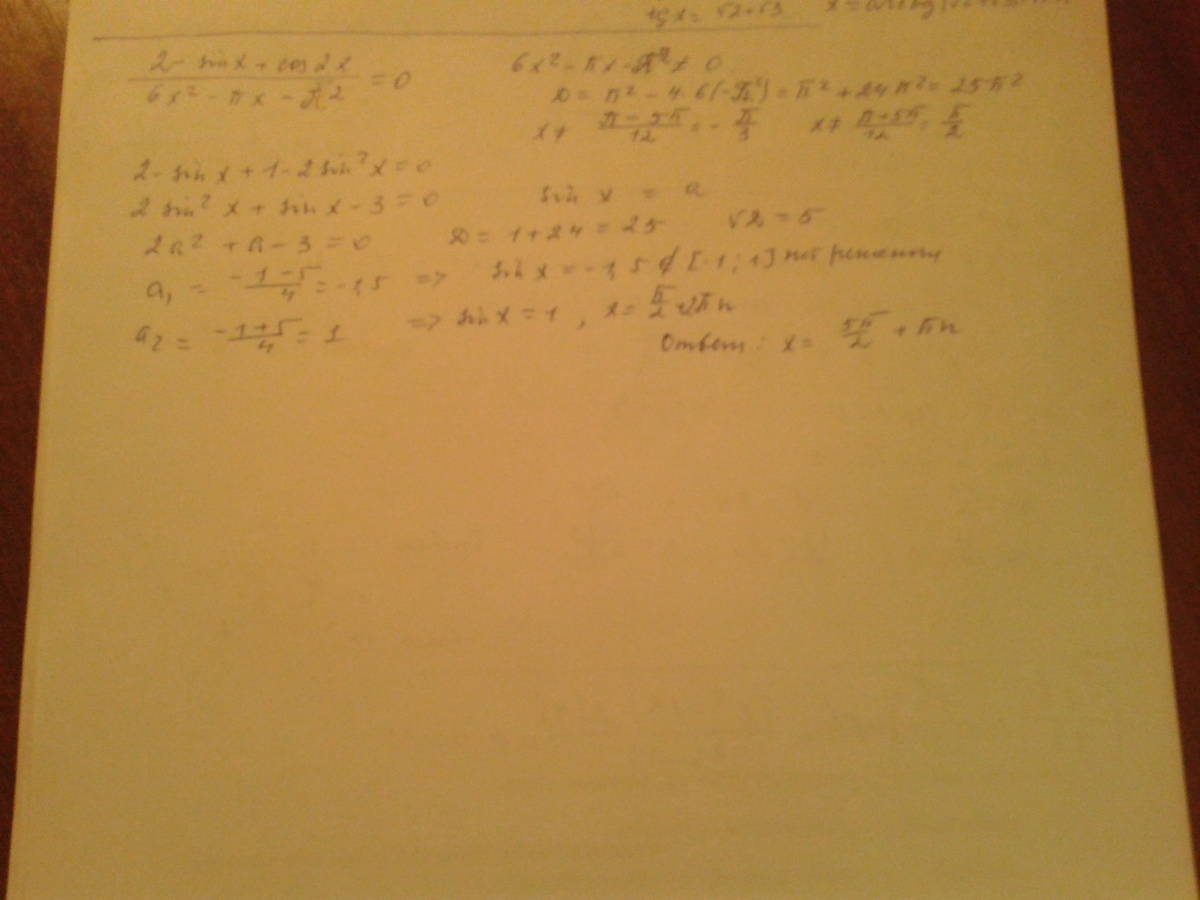 tg x = √2+√3
(2 - sin x + cos 2x) / (6x² - πx - π²) = 0
6x² - πx - π² ≠ 0
D = π² - 4·6(-π²) = π² + 24π² = 25π²
x ≠ (π - 5π)/12 = - π/3 x ≠ (π+5π)/12 = π/2
2 - sin x + 1 - 2 sin² x = 0
2 sin² x + sin x - 3 = 0 sin x = a
2a² + a - 3 = 0 D = 1 + 24 = 25 √D = 5
a₁ = (-1-5)/4 = -1,5 => sin x = -1,5 ∉ [-1; 1] нет решений
a₂ = (-1+5)/4 = 1 => sin x = 1, x = π/2 + 2πn
Ответ: x = 5π/2 + πn